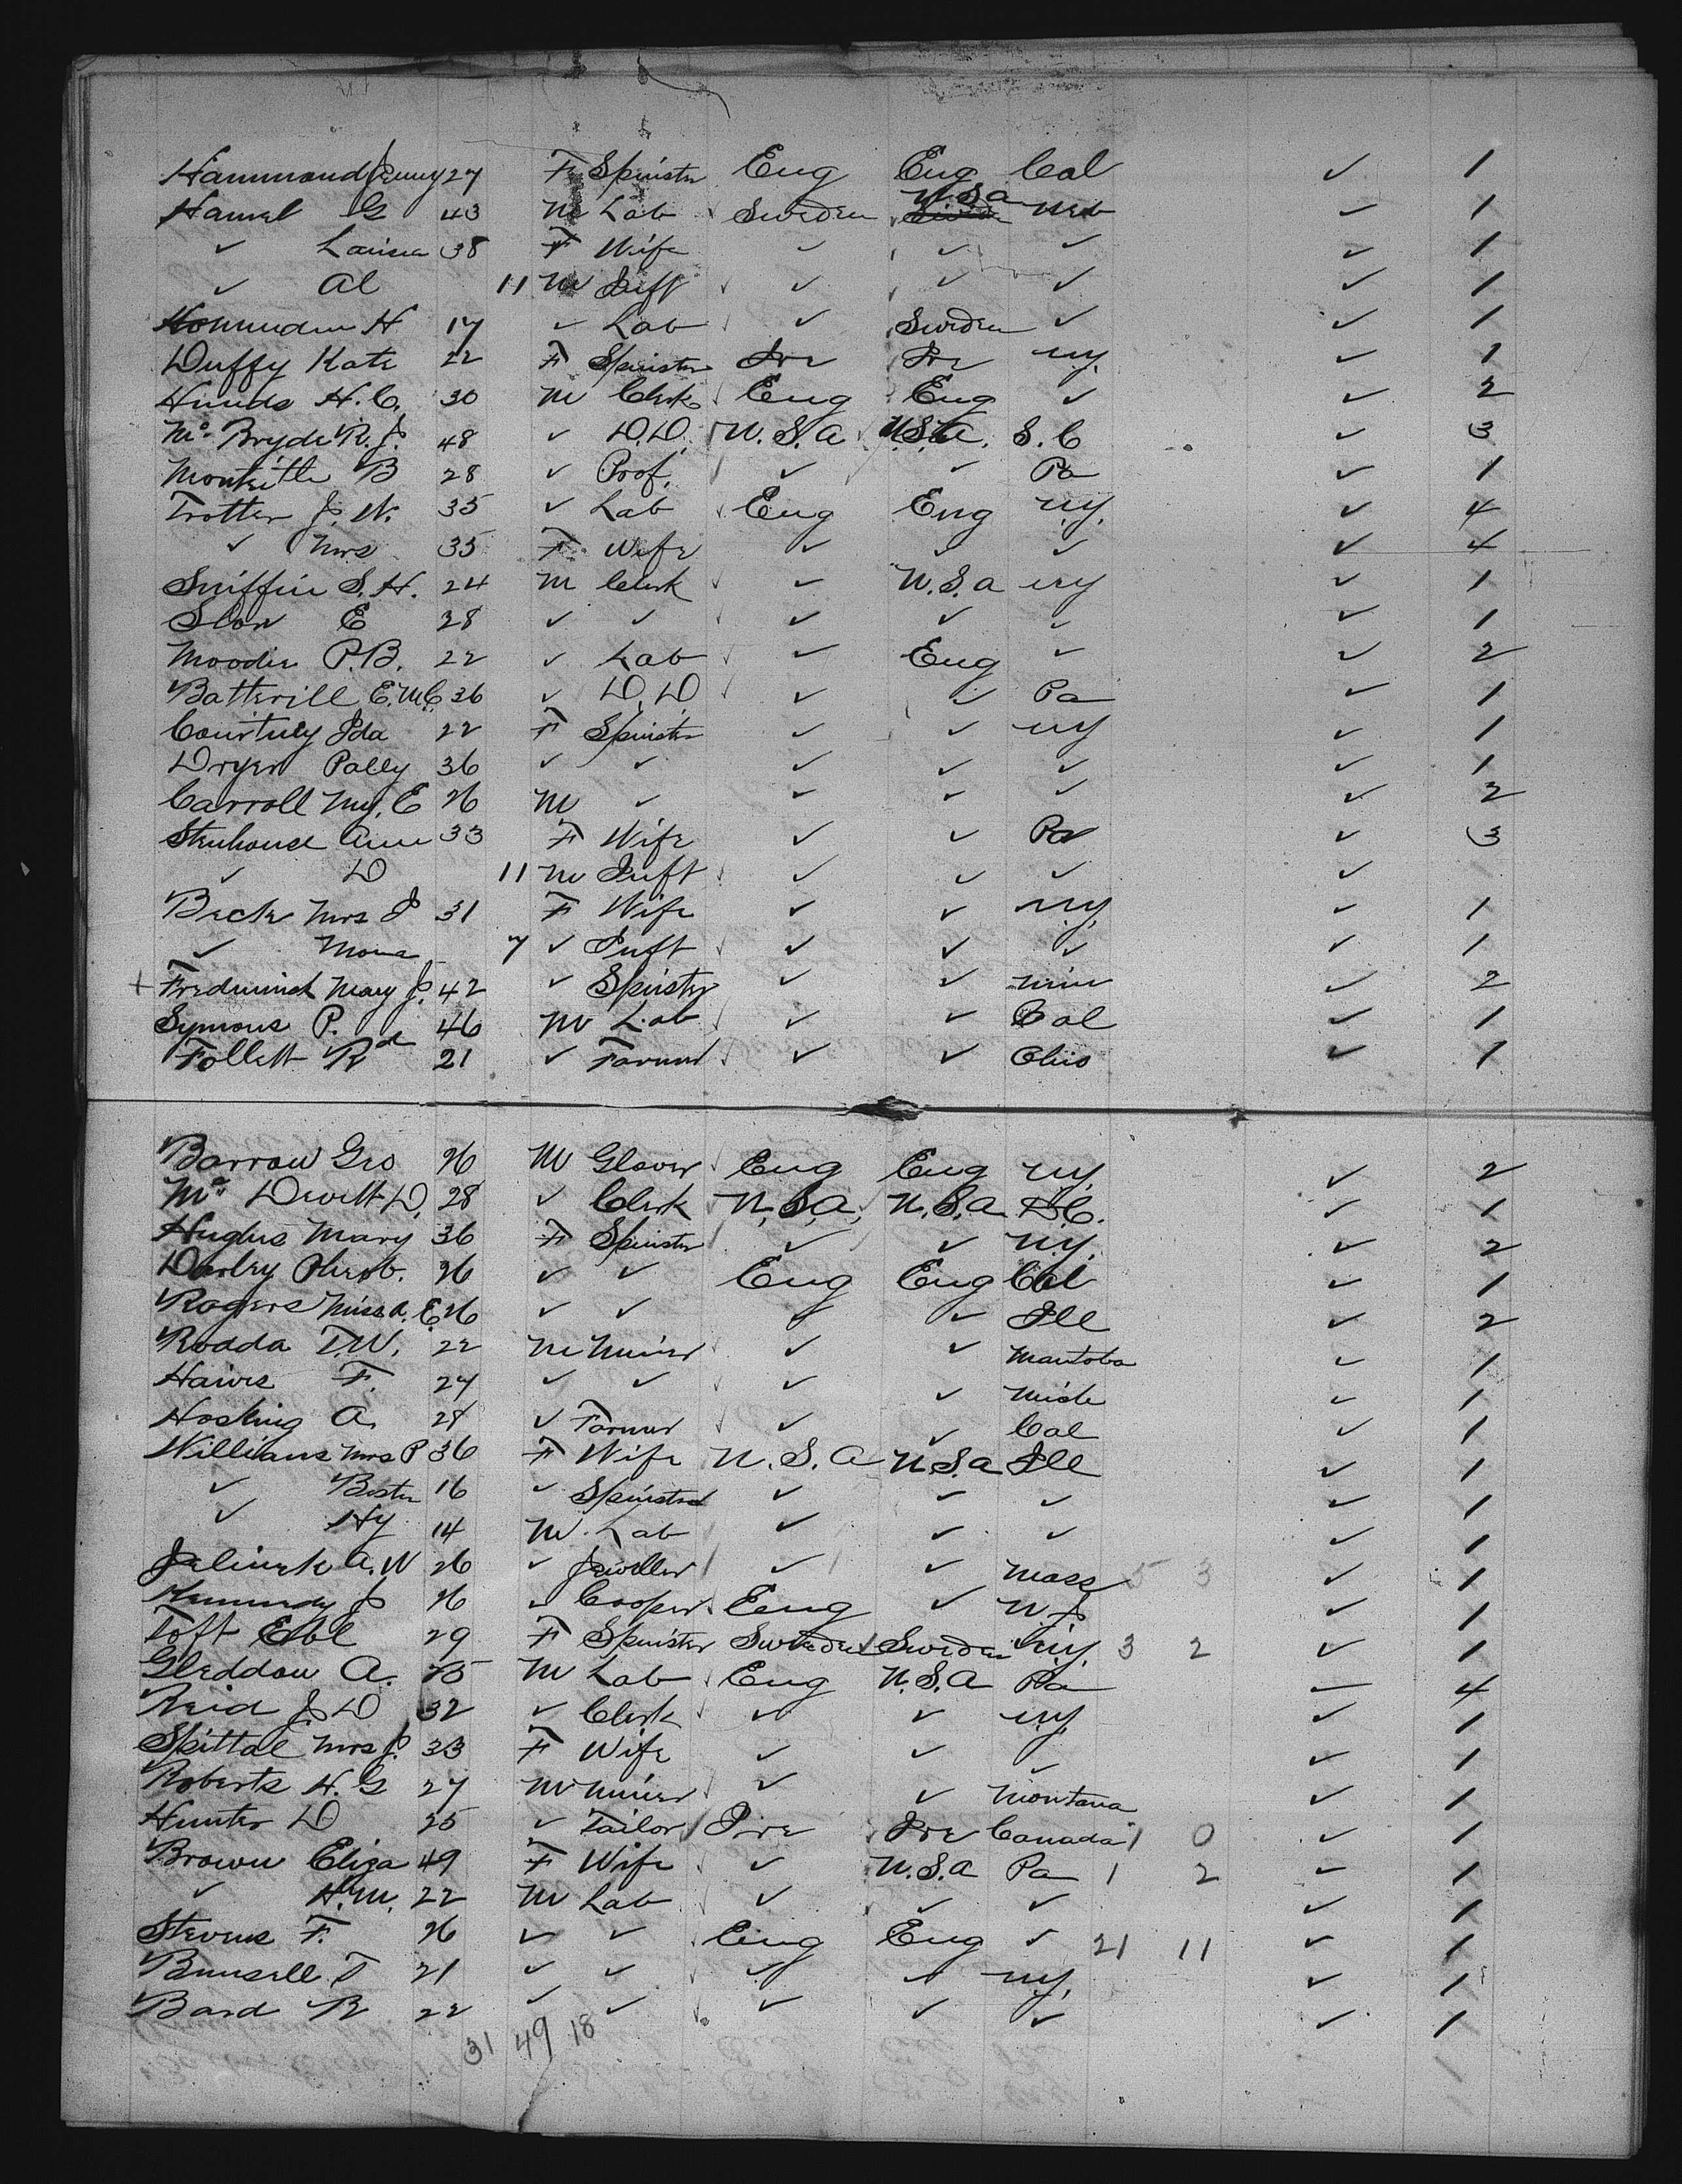 Hammond Jenny 27 F Spinster Eng Eng Cal ✓ 1
Hamel G 43 M Lab Sweden U.S.A Neb ✓ 1
✓ Louisa 38 F Wife ✓ ✓ ✓ ✓ 1
✓ Al 11 M Inft ✓ ✓ ✓ ✓ 1
H 17 ✓ Lab ✓ Sweden ✓ ✓ 1
Duffy Kate 22 F Spinster Ire Ire N.Y. ✓ 1
H.C. 30 M Clerk Eng Eng ✓ ✓ 2
Mc. Bryde R. J. 48 ✓ D.D. U.S.A U.S.A. S.C ✓ 3
Monteith B 28 ✓ Prof. ✓ ✓ Pa ✓ 1
Trotter J. W. 35 ✓ Lab Eng Eng N.Y. ✓ 4
✓ Mrs 35 F Wife ✓ ✓ ✓ ✓ 4
Sniffin S. H. 24 M Clerk ✓ U.S.A N.Y ✓ 1
Slow E 28 ✓ ✓ ✓ ✓ ✓ ✓ 1
Moodie P.B. 22 ✓ Lab ✓ Eng ✓ ✓ 2
Batterill E.M.C. 36 ✓ D.D. ✓ ✓ Pa ✓ 1
Courtney Ida 22 F Spinster ✓ ✓ N.Y ✓ 1
Dryer Polly 36 ✓ ✓ ✓ ✓ ✓ ✓ 1
Carroll My. E 26 M ✓ ✓ ✓ ✓ ✓ 2
Stenhouse Anne 33 F Wife ✓ ✓ Pa ✓ 3
✓ D 11 M Inft ✓ ✓ ✓ ✓
Beck Mrs J 31 F Wife ✓ ✓ N.Y. ✓ 1
✓ Mona 7 ✓ Inft ✓ ✓ ✓ ✓ 1
+ Mary J. 42 ✓ Spinster ✓ ✓ Minn ✓ 2
Symons P. 46 M Lab ✓ ✓ Cal ✓ 1
Follett Rd 21 ✓ Farmer ✓ ✓ Ohio ✓ 1
Barrow Geo 26 M Glover Eng Eng N.Y. ✓ 2
Mc. Dewitt D. 28 ✓ Clerk U.S.A. U.S.A D.C. ✓ 1
Hughes Mary 36 F Spinster ✓ ✓ N.Y. ✓ 2
Darley Pheob. 26 ✓ ✓ Eng Eng Cal ✓ 1
Rogers Miss A. E. 26 ✓ ✓ ✓ ✓ Ill ✓ 2
Rodda T.W. 22 M Miner ✓ ✓ Manitoba ✓ 1
Hawes F. 24 ✓ ✓ ✓ ✓ Mich ✓ 1
Hosking A. 28 ✓ Farmer ✓ ✓ Cal ✓ 1
Williams Mrs P 36 F Wife U.S.A U.S.A Ill ✓ 1
✓ 16 ✓ Spinster ✓ ✓ ✓ ✓ 1
✓ Hy 14 M Lab ✓ ✓ ✓ ✓ 1
Jelinek A. W 26 ✓ Jeweller ✓ ✓ Mass 5 3 ✓ 1
Kennedy J 26 ✓ Cooper Eng ✓ N J ✓ 1
Toft 29 F Spinster Sweden Sweden N.Y. 3 2 ✓ 1
Gleddow A. M Lab Eng U.S.A Pa — 4
Reid J. D 32 ✓ Clerk ✓ ✓ N.Y. ✓ 1
Spittal Mrs J. 33 F Wife ✓ ✓ ✓ ✓ 1
Roberts H. G 27 M Miner ✓ ✓ Montana ✓ 1
Hunter D 25 ✓ Tailor Ire Ire Canada 1 0 ✓ 1
Brown Eliza 49 F Wife ✓ U.S.A Pa 1 2 ✓ 1
✓ H.M. 22 M Lab ✓ ✓ ✓ ✓ 1
Stevens F. 26 ✓ ✓ Eng Eng ✓ 21 11 ✓ 1
Bunsell T 21 ✓ ✓ ✓ ✓ N.Y. ✓ 1
Bard R 22 ✓ ✓ ✓ ✓ ✓ ✓ 1
31 49 18